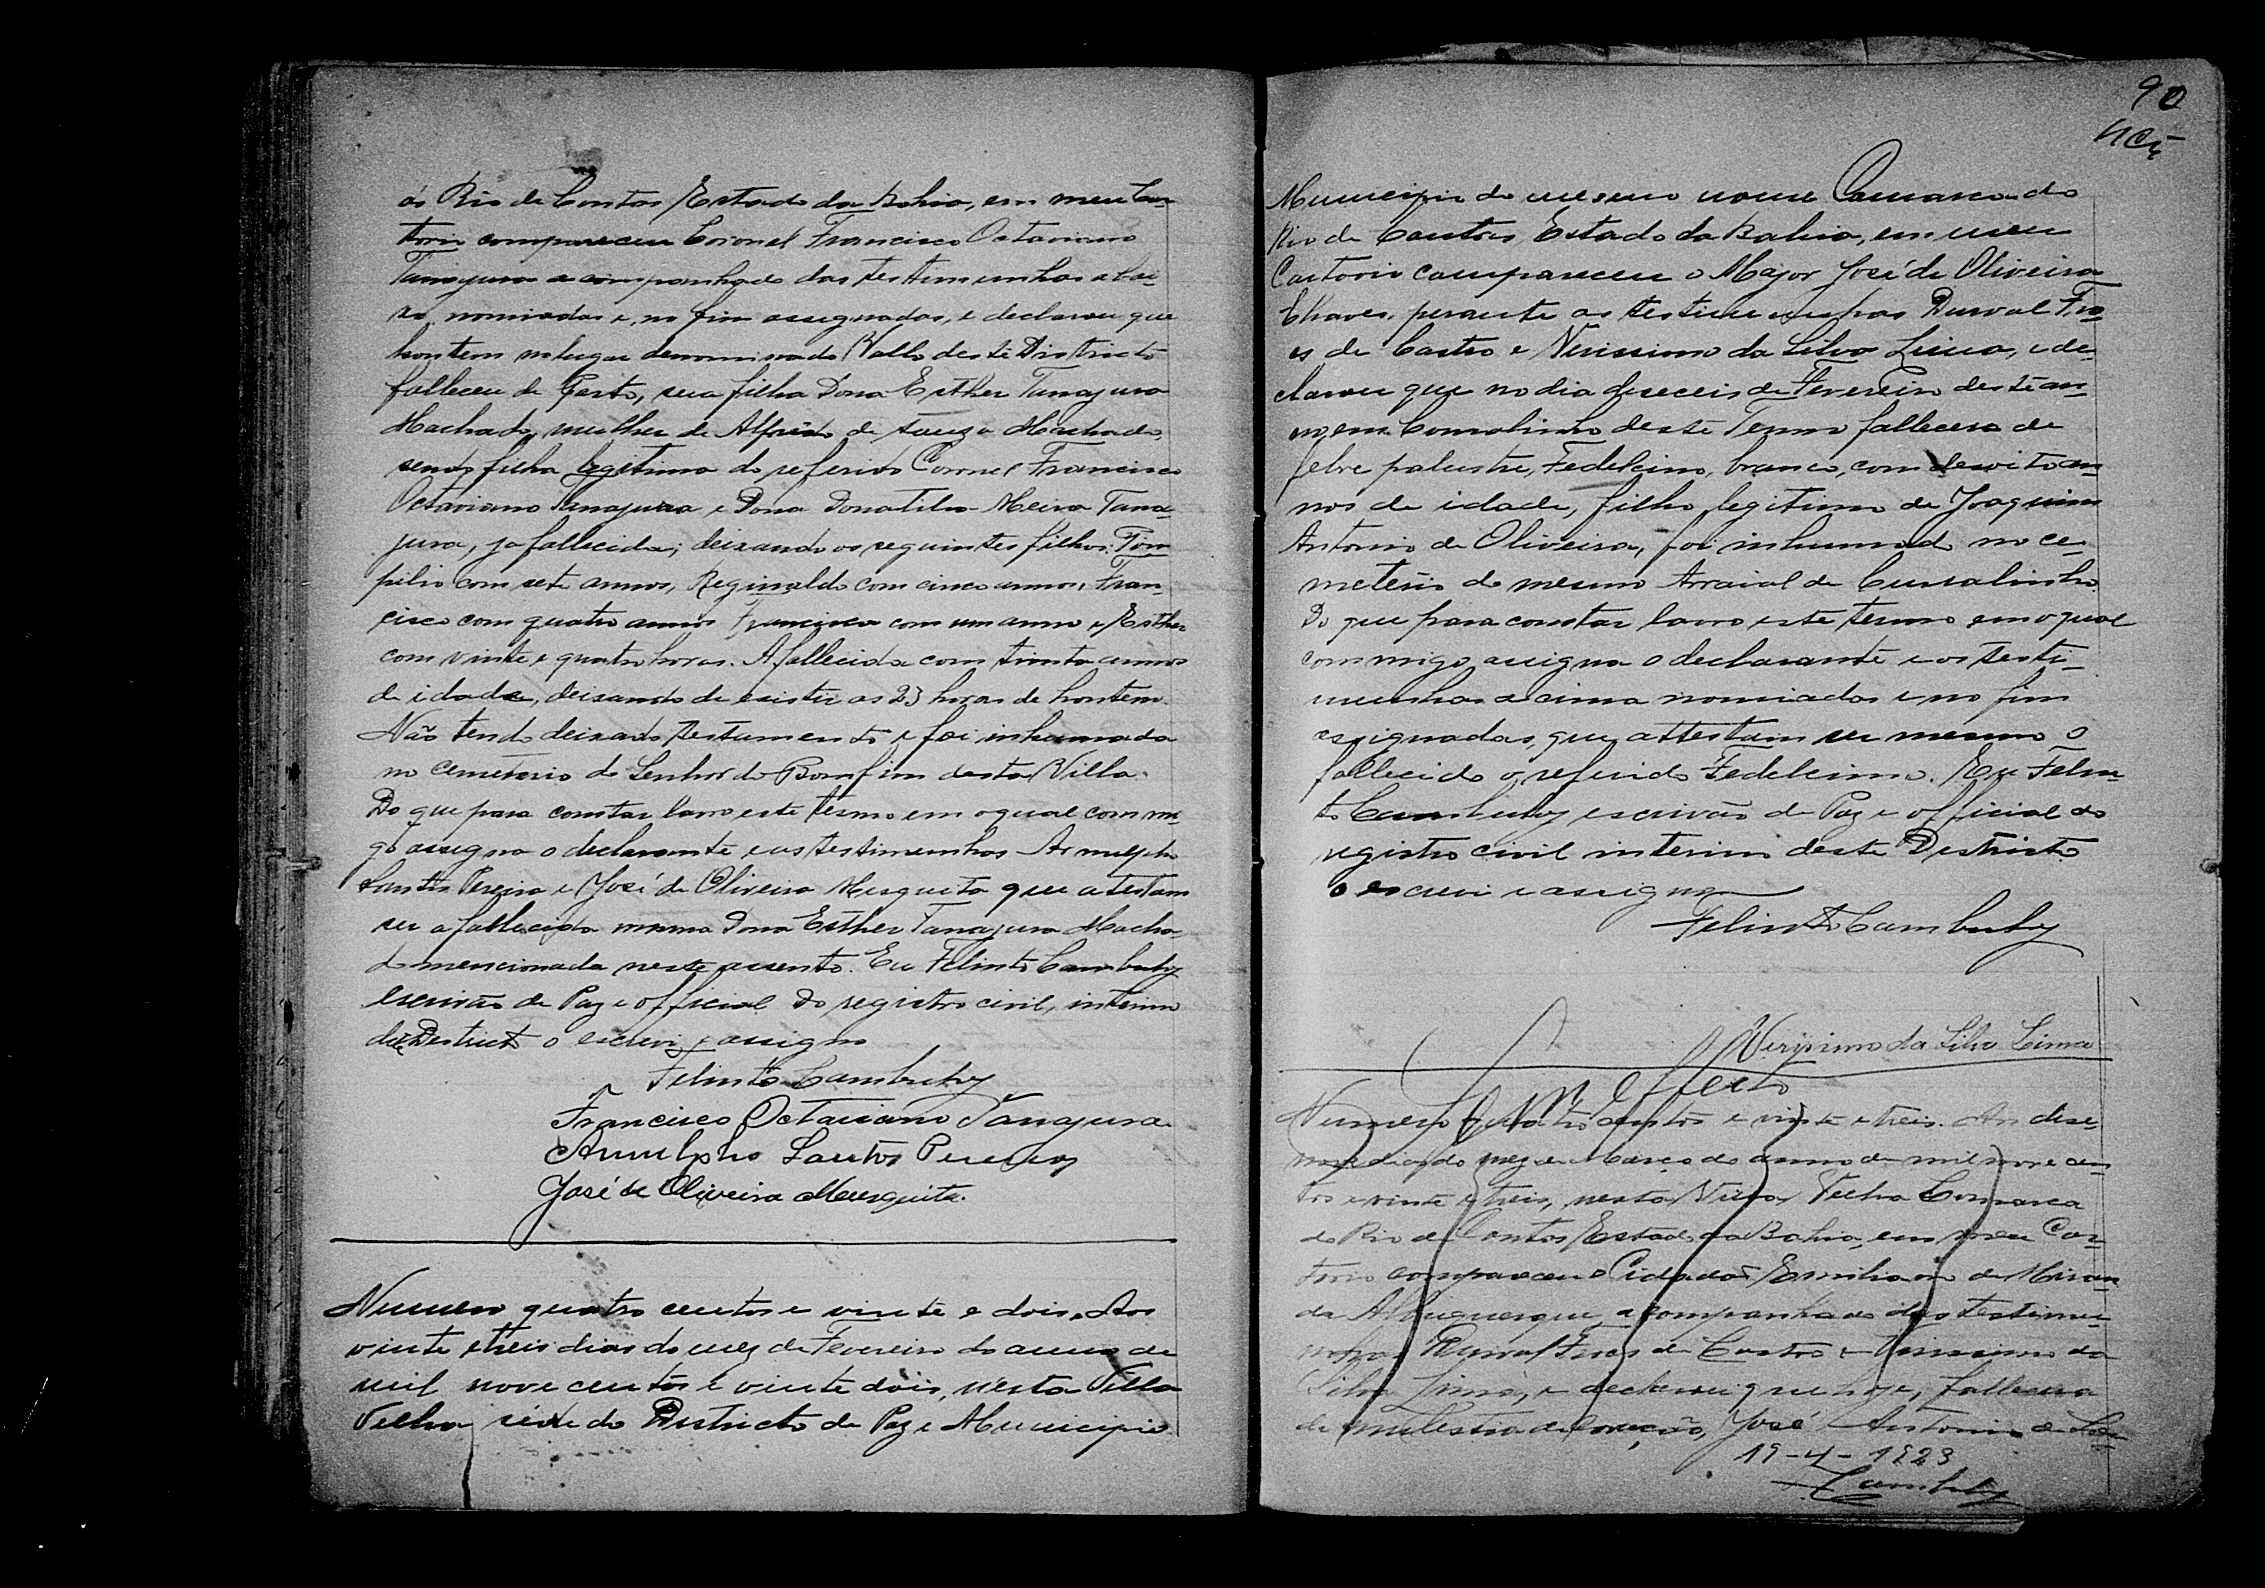 do Rio de Contas Estado da Bahia, em meu Car-
torio compareceu Coronel Francisco Octaviano
Tanajura acompanhado das testimunhas abai-
xo nomiadas e, no fim assignadas, e declarou que
hontem no lugar denominado Vallo deste Districto
falleceu de Parto, sua filha Dona Esther Tanajura
Machado, mulher de Alfredo de Souza Machado,
sendo filha legitima do referido Coronel Francisco
Octaviano Tanajura e Dona Donatilia Meira Tana-
jura, ja fallecida; deixando os seguintes filhos: Pom-
pilio com sete annos, Reginaldo com cinco annos, Fran-
cisco com quatro annos Francisca com um anno e Esther
com vinte e quatro horas. A fallecida com trinta annos
de idade, deixando de existir as 23 horas de hontem.
Não tendo deixado testamento e foi inhumada
no cemeterio do Senhor do Bomfim desta Villa.
Do que para constar lavro este termo em o qual com mi-
go assigna o declarante e as testimunhas Arnulpho
Santos Pereira e José de Oliveira Mesquita que atestam
ser a fallecida mesma Dona Esther Tanajura Macha-
do mencionada neste assento. Eu Felinto Cambuhy
escrivão de Paz e official do registro civil, interino
deste Districto o escrevi e assigno
Felinto Cambuhy
Francisco Octaviano Tanajura.
Arnulpho Santos Pereira
José de Oliveira Mesquita.
Numero quatro centos e vinte e dois. Aos
vinte e treis dias do mez de Fevereiro do anno de
mil nove centos e vinte dois, nesta Villa
Velha, séde do Districto de Paz e Municipio
90
Municipio do mesmo nome Comarca do
Rio de Contas, Estado da Bahia, em meu
Cartorio compareceu o Major José de Oliveira
Chaves, perante as testimunhas Durval Fro-
es de Castro e Virissimo da Silva Lima, e de-
clarou que no dia deseceis de Fevereiro deste an-
no, em Curralinho deste Termo fallecera de
febre palustre, Fedelcino, branco, com desoito an-
nos de idade, filho legitimo de Joaquim
Antonio de Oliveira, foi inhumado no ce-
meterio do mesmo Arraial de Curralinho.
Do que para constar lavro este termo em o qual
commigo assigna o declarante e as testi-
munhas acima nomiadas e no fim
assignadas, que attestam ser mesmo o
fallecido o referido Fedelcino. Eu Felin-
to Cambuhy escrivão de Paz e official do
registro civil interino deste Districto
o escrevi e assigno
Felinto Cambuhy
Verissimo da Silva Lima
Sem effeito
Numero Quatro centos e vinte e treis. Aos dese-
nove dias do mez de Março do anno de mil nove cen-
tos e vinte e treis, nesta Villa Velha Comarca
do Rio de Contas Estado da Bahia, em meu Car-
torio compareceu o Cidadão Emiliano de Miran-
da Albuquerque, acompanhado das testimu-
nhas Durval Froes de Castro e Virissimo da
Silva Lima, e declarou que hoje, fallecera
de mulestia de coração, José Antonio de
19-4-1923
F. Cambuhy